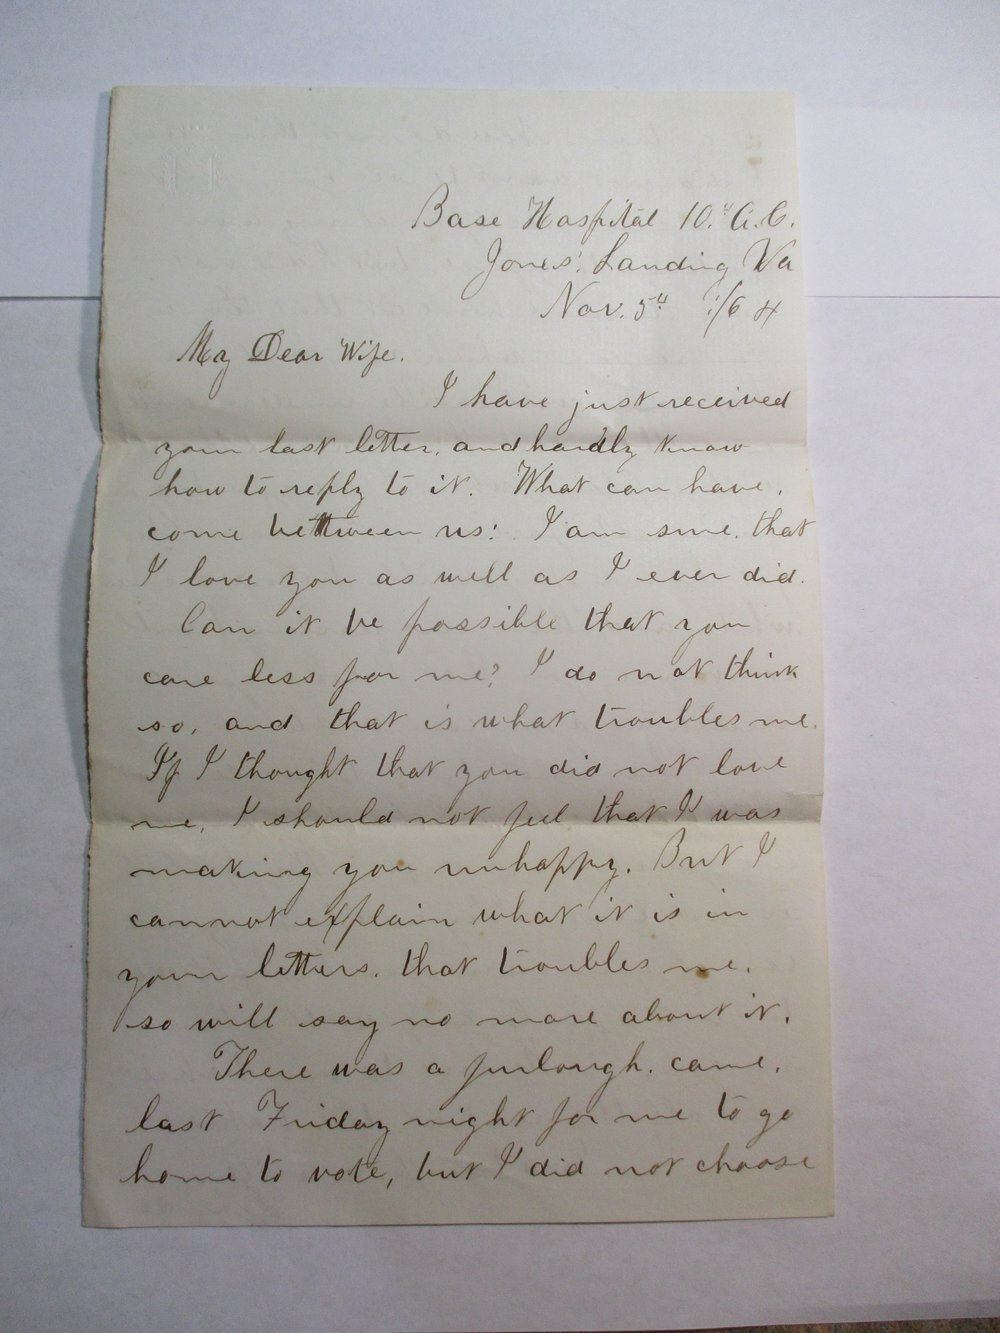 Base Hospital 10.th A.C.
Jones' Landing Va
Nov. 5th /64
My Dear Wife.
I have just received
your last letter, and hardly know
how to reply to it. What can have,
come bettween us: I am sure. that
I love you as well as I ever did.
Can it be possible that you
care less for me? I do not think
so, and that is what troubles me.
If I thought that you did not love
me, I should not feel that I was
making you unhappy. But I
cannot explain what it is in
your letters. that troubles me.
so will say no more about it.
There was a furlough. came.
last Friday night for me to go
home to vote, but I did not choose